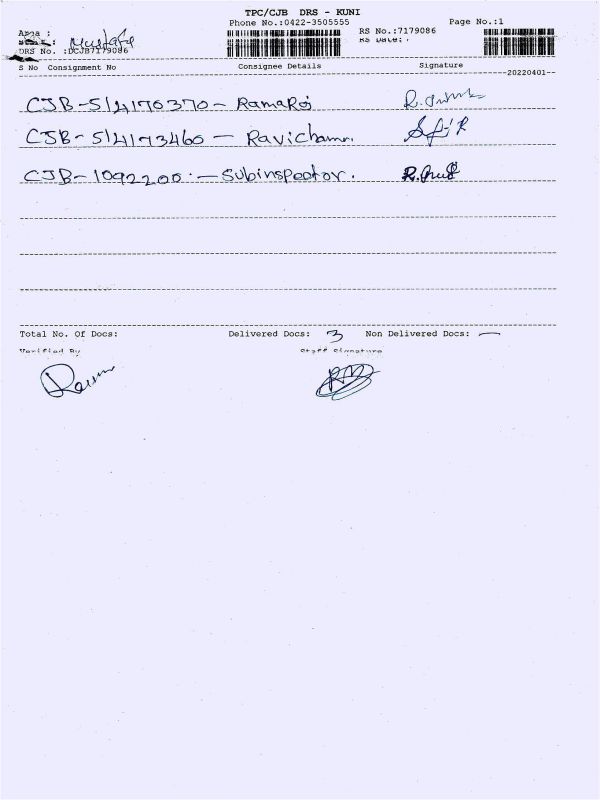 TPC/CJB DRS - KUNI
Phone No.:0422-3505555 Page No.:1
Area : RS No.:7179086
Mustafa RS Date:
DRS No. :DCJB7179086
S No Consignment No Consignee Details Signature
--20220401--
CJB-514170370 - RamaRaj
CJB-514173460 - Ravichamn.
CJB-1092200 - Subinspector.
Total No. Of Docs: Delivered Docs: 3 Non Delivered Docs: —
Verified By Staff Signature